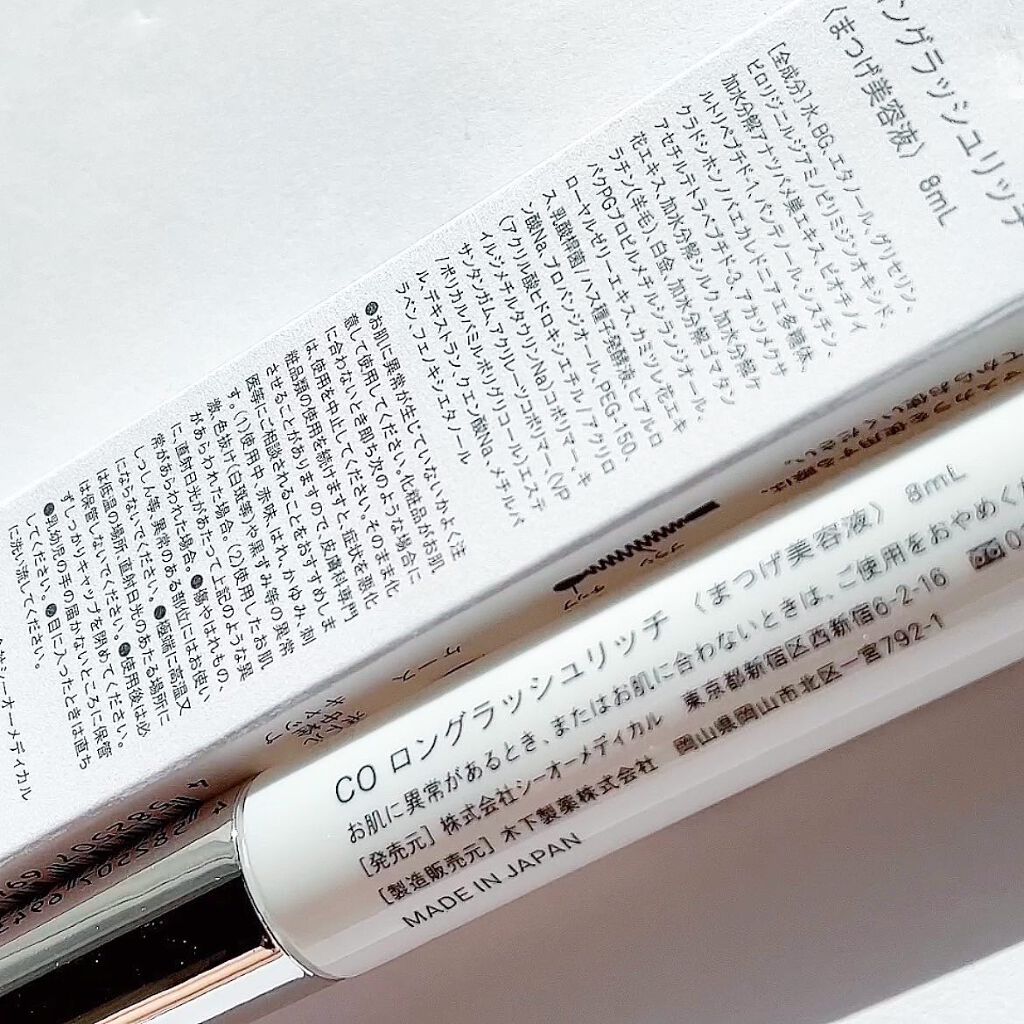 ングラッシュリッチ
〈まつげ美容液〉 8mL
[全成分]水、BG、エタノール、グリセリン、
ピロリジニルジアミノピリミジンオキシド、
加水分解アナツバメ巣エキス、ビオチノイ
ルトリペプチド-1、パンテノール、シスチン、
クラドシホンノバエカレドニアエ多糖体、
アセチルテトラペプチド-3、アカツメクサ
花エキス、加水分解シルク、加水分解ケ
ラチン(羊毛)、白金、加水分解ゴマタン
パクPGプロピルメチルシランジオール、
ローヤルゼリーエキス、カミツレ花エキ
ス、乳酸桿菌/ハス種子発酵液、ヒアルロ
ン酸Na、プロパンジオール、PEG-150、
(アクリル酸ヒドロキシエチル/アクリロ
イルジメチルタウリンNa)コポリマー、キ
サンタンガム、アクリレーツコポリマー、(VP
/ポリカルバミルポリグリコール)エステ
ル、デキストラン、クエン酸Na、メチルパ
ラベン、フェノキシエタノール
お肌に異常が生じていないかよく注
意して使用してください。化粧品がお肌
に合わないとき即ち次のような場合に
は、使用を中止してください。そのまま化
粧品類の使用を続けますと、症状を悪化
させることがありますので、皮膚科専門
医等にご相談されることをおすすめしま
す。(1)使用中、赤味、はれ、かゆみ、刺
激、色抜け(白斑等)や黒ずみ等の異常
があらわれた場合。(2)使用したお肌
に、直射日光があたって上記のような異
常があらわれた場合。 傷やはれもの、
しっしん等、異常のある部位にはお使い
にならないでください。 極端に高温又
は低温の場所、直射日光のあたる場所に
は保管しないでください。 使用後は必
ずしっかりキャップを閉めてください。
乳幼児の手の届かないところに保管
してください。 目に入ったときは直ち
に洗い流してください。
シーオーメディカル
ブラシ
チップ
ケース
CO ロングラッシュリッチ 〈まつげ美容液〉 8mL
お肌に異常があるとき、またはお肌に合わないときは、ご使用をおやめくだ
[発売元] 株式会社シーオーメディカル 東京都新宿区西新宿6-2-16
[製造販売元] 木下製薬株式会社 岡山県岡山市北区一宮792-1
MADE IN JAPAN